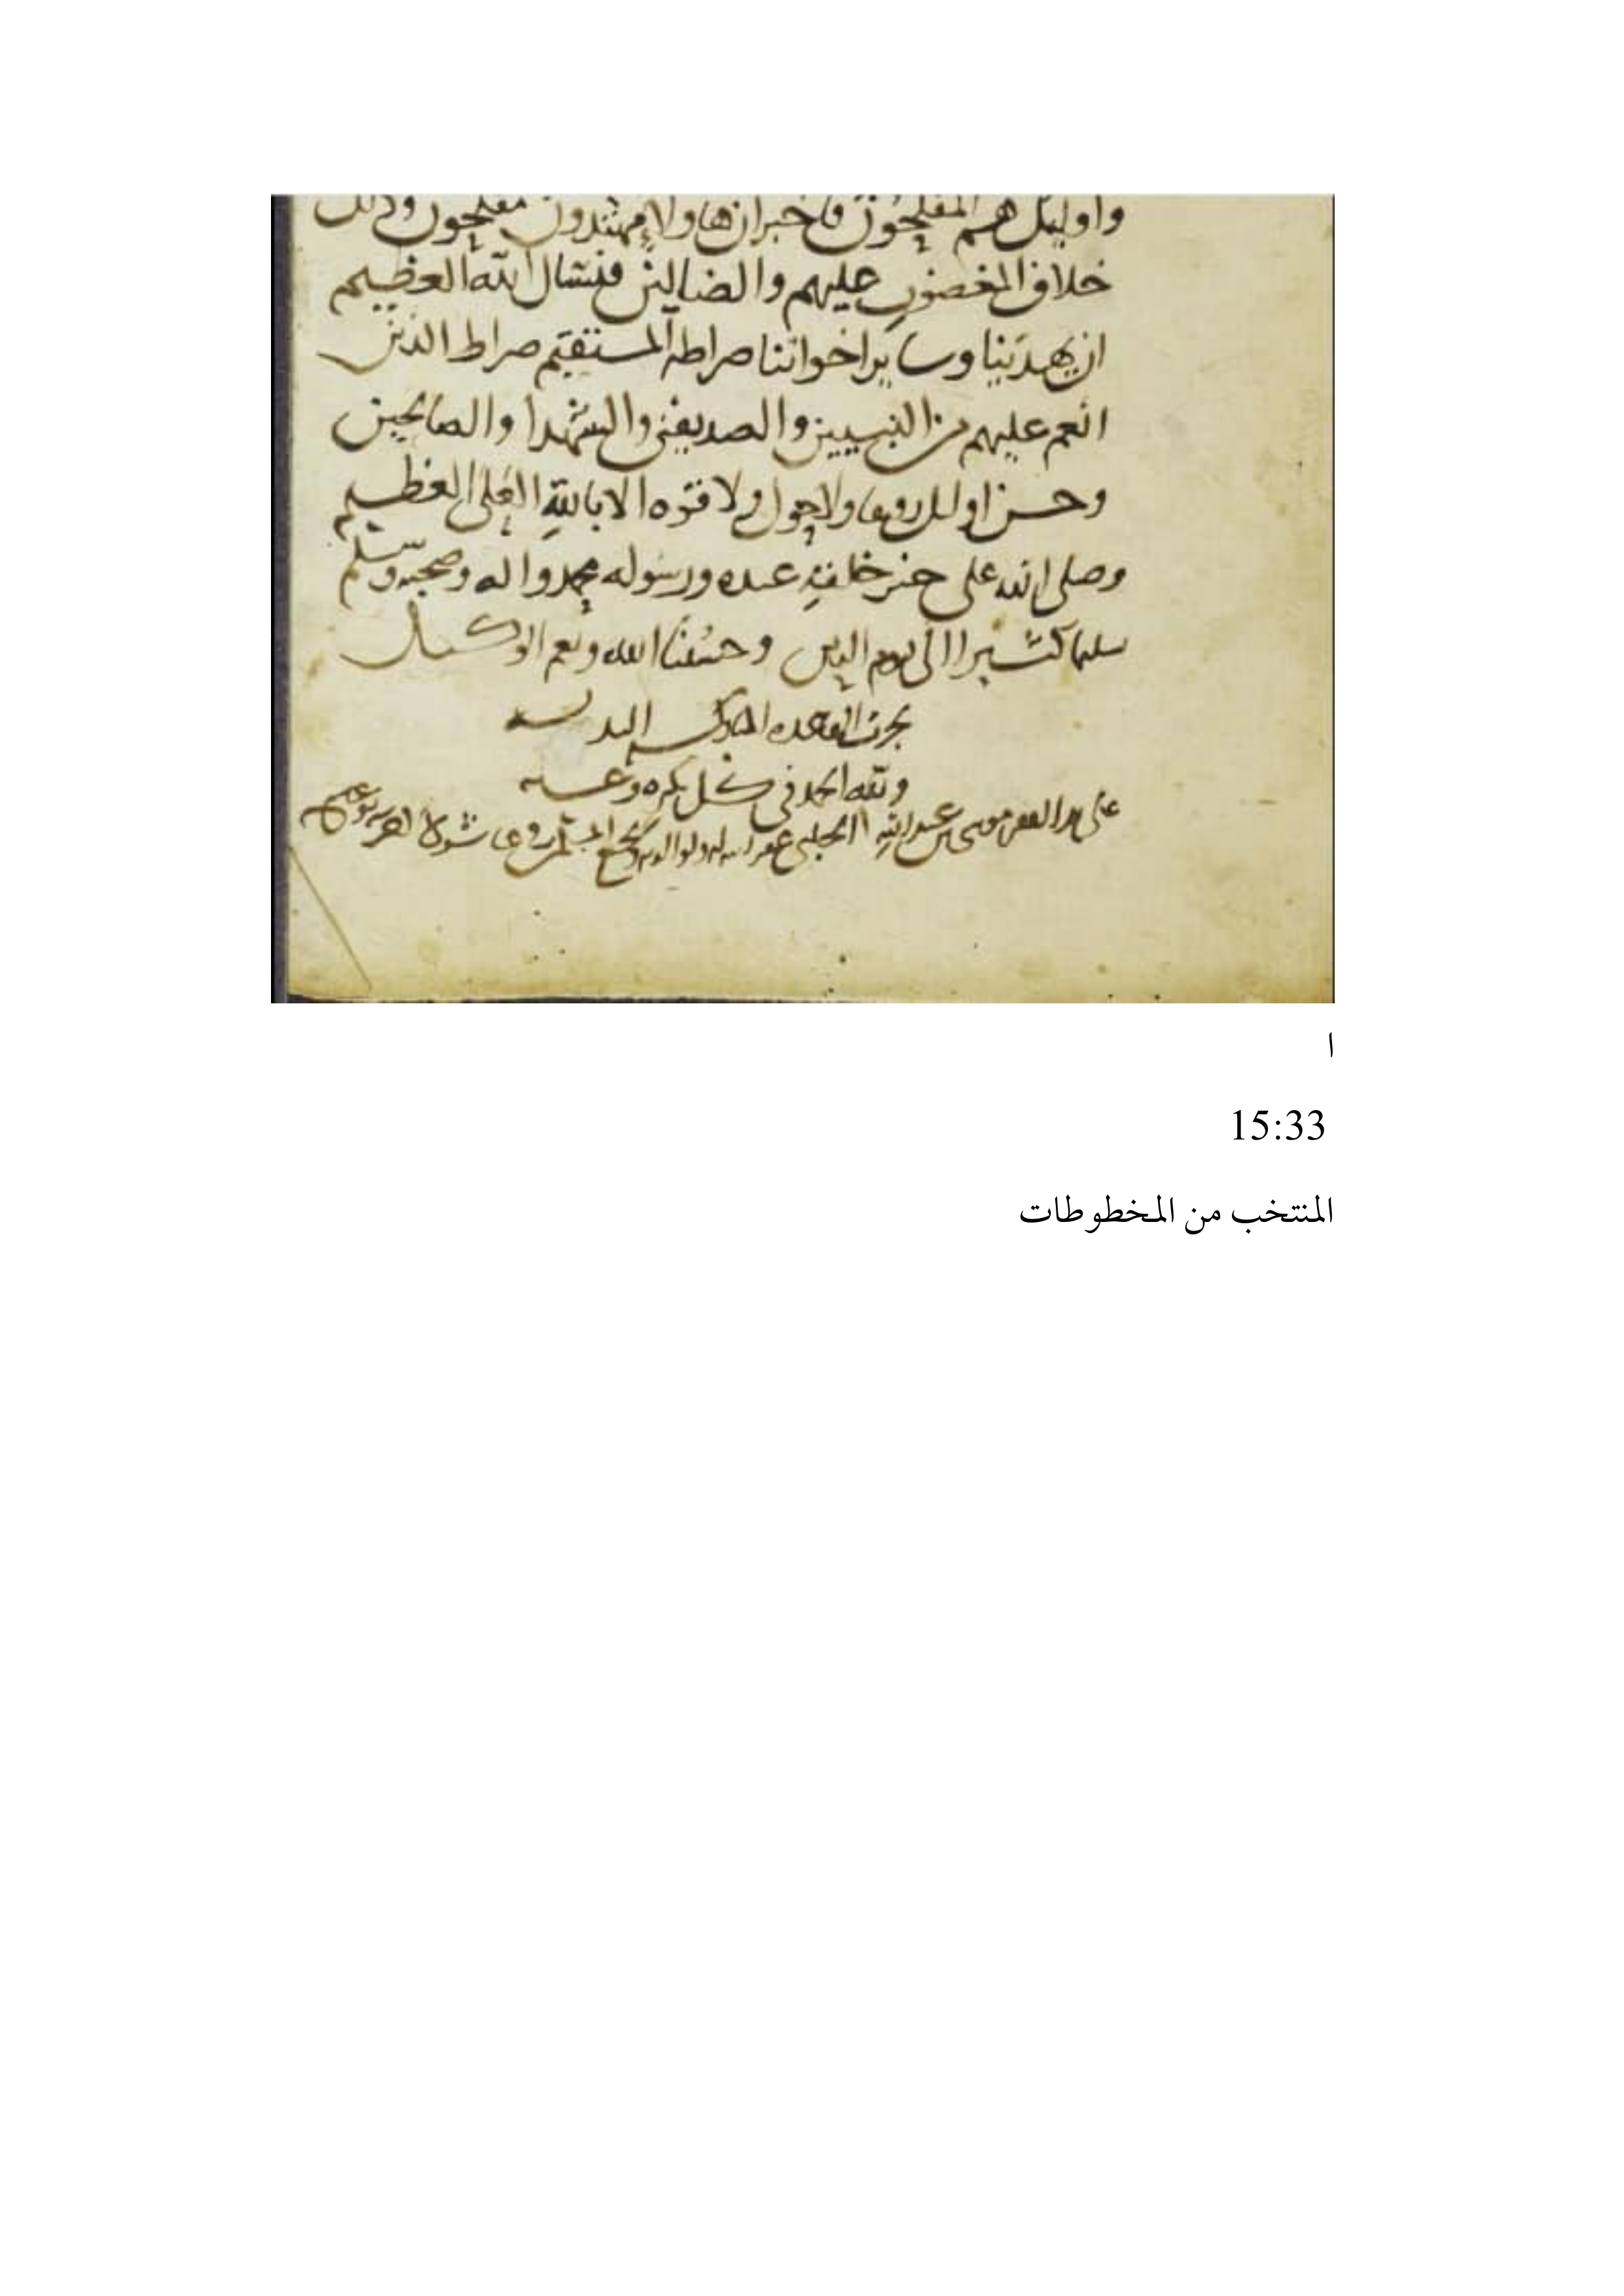 واوليك هم المفلحون فاخبر ان هاولاء مهتدون مفلحون وذلك
خلاف المغضوب عليهم والضالين فنسال الله العظيم
ان يهدينا وساير اخواننا صراطه المستقيم صراط الذين
انعم عليهم من النبيين والصديقين والشهدا والصالحين
وحسن اوليك رفيقا ولا حول ولا قوه الا بالله العلى العظيم
وصلى الله على خير خلقه عبده ورسوله محمد واله وصحبه وسلم
تسليما كثيرا الى يوم الدين وحسبنا الله ونعم الوكيل
نجزت القاعده المباركه
ولله الحمد فى كل بكره وعشيه
على يد الفقير موسى بن عبد الله الحنبلى غفر الله له ولوالديه ولجميع المسلمين فى عاشور
ا
15:33
المنتخب من المخطوطات